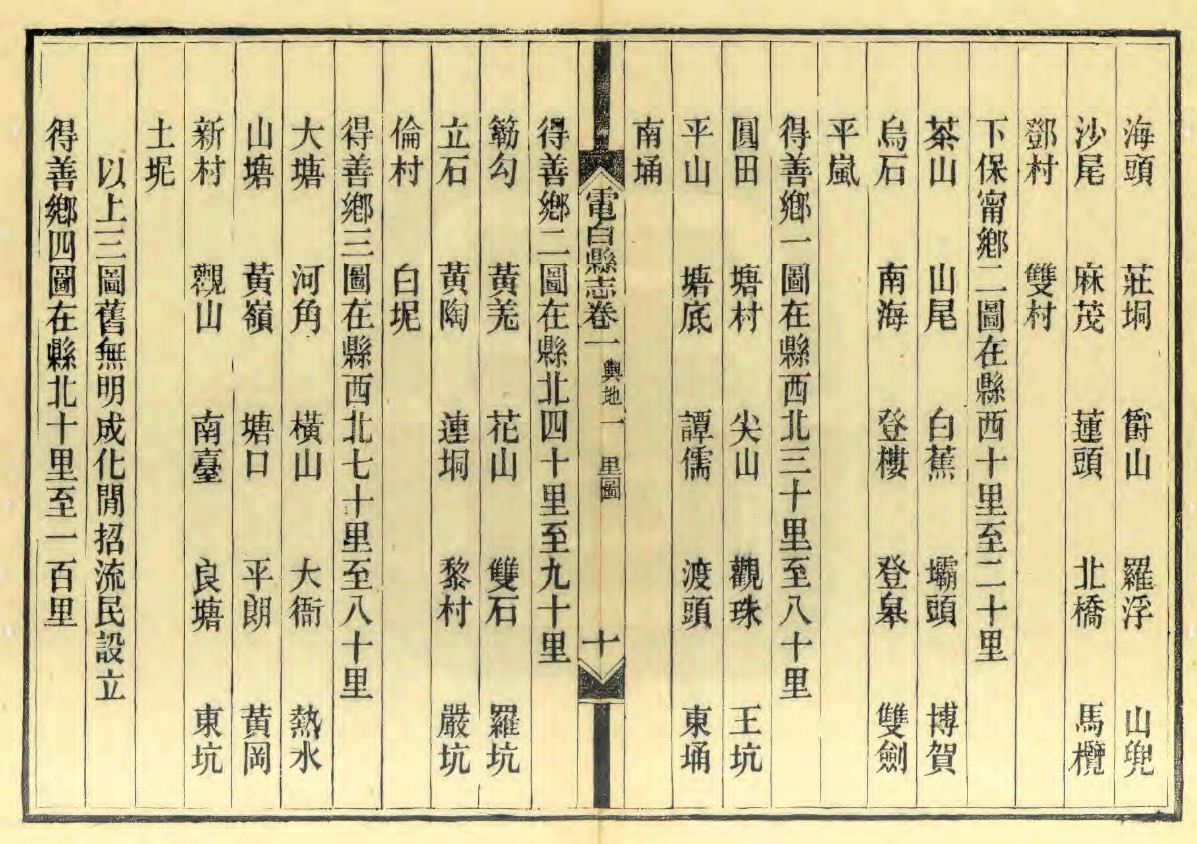 海頭　莊垌　爵山　羅浮　山兜
沙尾　麻茂　蓮頭　北橋　馬欖
鄧村　雙村
下保甯鄉二圖在縣西十里至二十里
茶山　山尾　白蕉　壩頭　博賀
烏石　南海　登樓　登皋　雙劍
平嵐
得善鄉一圖在縣西北三十里至八十里
圓田　塘村　尖山　觀珠　王坑
平山　塘底　譚儒　渡頭　東埇
南埇
電白縣志卷一　輿地一　里圖　十
得善鄉二圖在縣北四十里至九十里
簕勾　黃羌　花山　雙石　羅坑
立石　黃陶　連垌　黎村　嚴坑
倫村　白坭
得善鄉三圖在縣西北七十里至八十里
大塘　河角　橫山　大衙　熱水
山塘　黃嶺　塘口　平朗　黃岡
新村　觀山　南臺　良塘　東坑
土坭
以上三圖舊無明成化閒招流民設立
得善鄉四圖在縣北十里至一百里